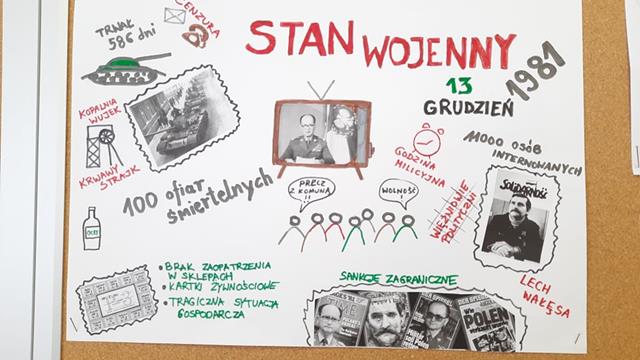 CENZURA
TRWAŁ
586 dni
STAN WOJENNY
13
GRUDZIEŃ
1981
KOPALNIA
WUJEK
KRWAWY
STRAJK
100 ofiar
śmiertelnych
PRECZ
Z KOMUNĄ
!!
WOLNOŚĆ!
GODZINA
MILICYJNA
11000 OSÓB
INTERNOWANYCH
WIĘŹNIOWIE
POLITYCZNI
SOLIDARNOŚĆ
LECH
WAŁĘSA
OCET
• BRAK ZAOPATRZENIA
W SKLEPACH
• KARTKI ŻYWNOŚCIOWE
• TRAGICZNA SYTUACJA
GOSPODARCZA
SANKCJE ZAGRANICZNE
DER SPIEGEL
POLEN